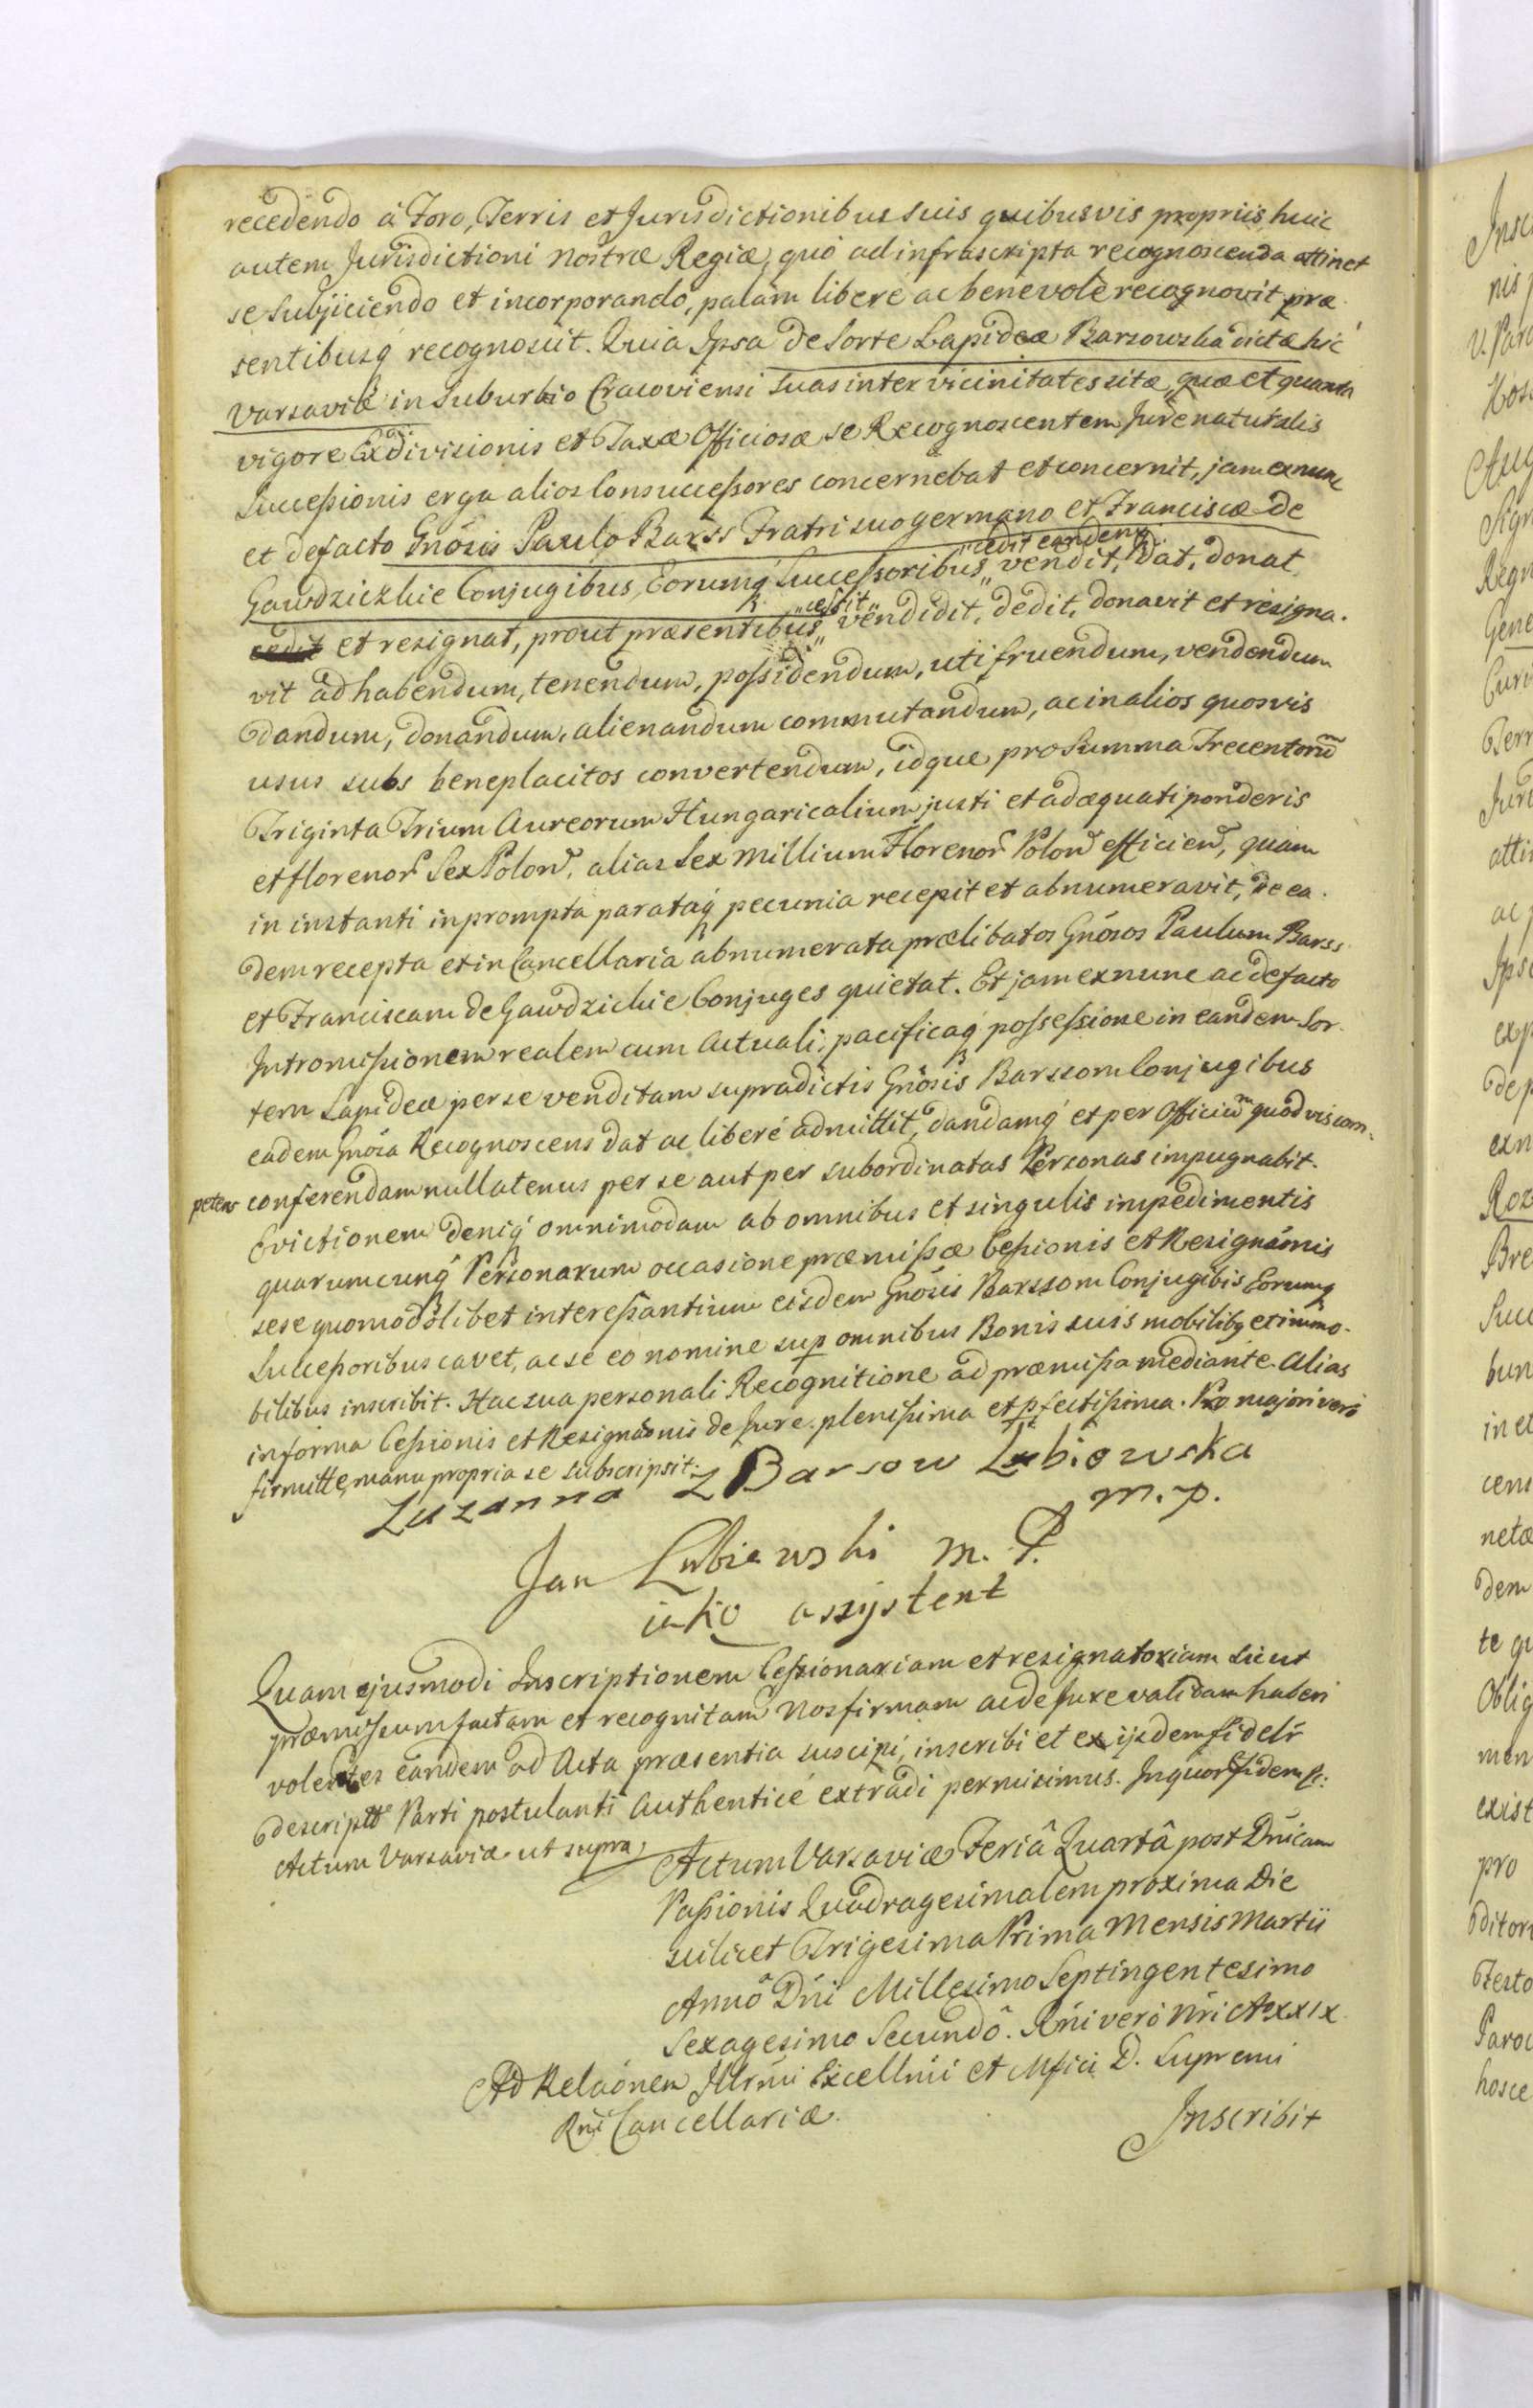 recedendo à Foro, Terris et Jurisdictionibus suis quibusvis propriis, huic
autem Jurisdictioni nostræ Regiæ, quò ad infrascripta recognoscenda attinet
se subjiciendo et incorporando, palàm liberè ac benevolè recognovit præ
sentibusq́ recognoscit. Quia Ipsa de Sorte Lapideæ Barsowska dictæ hic
Varsaviæ in Suburbio Cracoviensi suas inter vicinitates sitæ, quæ et quanta
vigore Exdivisionis et Taxæ Officiosæ se Recognoscentem Jure naturalis
Successionis erga alios Consuccessores concernebat et concernit, jam exnunc
et defacto Gnósis Paulo Barss Fratri suo germano et Franciscæ de
Gawdzickie Conjugibus, Eorumq́ Successoribus „cedit eandem„ vendit, dat, donat
cedit et resignat, prout præsentibus „cessit„ vendidit, dedit, donavit et resigna.
vit ad habendum, tenendum, possidendum, uti fruendum, vendendum
dandum, donandum, alienandum commutandum, ac in alios quosvis
usus suos beneplacitos convertendum, idque pro Summa Trecentorum̃
Triginta Trium Aureorum Hungaricalium justi et adæquati ponderis
et florenor̃ Sex Polon̄, alias Sex Millium Florenor̃ Polon̄ efficien̄, quam
in instanti in prompta parataq́ pecunia recepit et abnumeravit, de ea.
dem recepta et in Cancellaria abnumerata prælibatos Gnósos Paulum Barss
et Franciscam de Gawdzickie Conjuges quietat. Et jam exnunc ac defacto
Intromissionem realem cum actuali, pacificaq́ possessione in eandem Sor
tem Lapideæ per se venditam supradictis Gnósis Barssom Conjugibus
eadem Gnósa Recognoscens dat ac liberè admittit, dandamq́ et per Officiũ quodvis com-
petens conferendam nullatenus per se aut per subordinatas Personas impugnabit.
Evictionem deniq́ omnimodam ab omnibus et singulis impedimentis
quarumcunq́ Personarum occasione præmissæ Cessionis et Resignãonis
sese quomodolibet interessantium eisdem Gnósis Barssom Conjugibis Eorumq́
Successoribus cavet, ac se eo nomine sup omnibus Bonis suis mobilibq et immo-
bilibus inscribit. Hac sua personali Recognitione ad præmissa mediante. Alias
in forma Cessionis et Resignãonis de Jure plenissima et pfectissima. Pro majori verò
firmitte, manu propria se subscripsit.
Zuzanna z Barsow Lubiowska
m. p.
Jan Lubiewski m. P.
iako assystent
Quam ejusmodi Inscriptionem Cessionariam et resignatoriam sicut
præmissum factam et recognitam nos firmam ac de Jure validam haberi
volentes eandem ad Acta præsentia suscipi, inscribi et ex ijsdem fidelr̃
descriptã Parti postulanti authenticè extradi permisimus. In quor̃ fidem &:
Actum Varsaviæ ut supra
Actum Varsaviæ Feriâ Quartâ post Dnicam
Passionis Quadragesimalem proxima Die
scilicet Trigesima Prima Mensis Martii
Annô Dni Millesimo Septingentesimo
Sexagesimo Secundô. Rńi verò Nri Ao XXIX
Ad Relaónem Illrmi Excellmi et Mfici D. Supremi
Rni Cancellariæ.
Inscribit